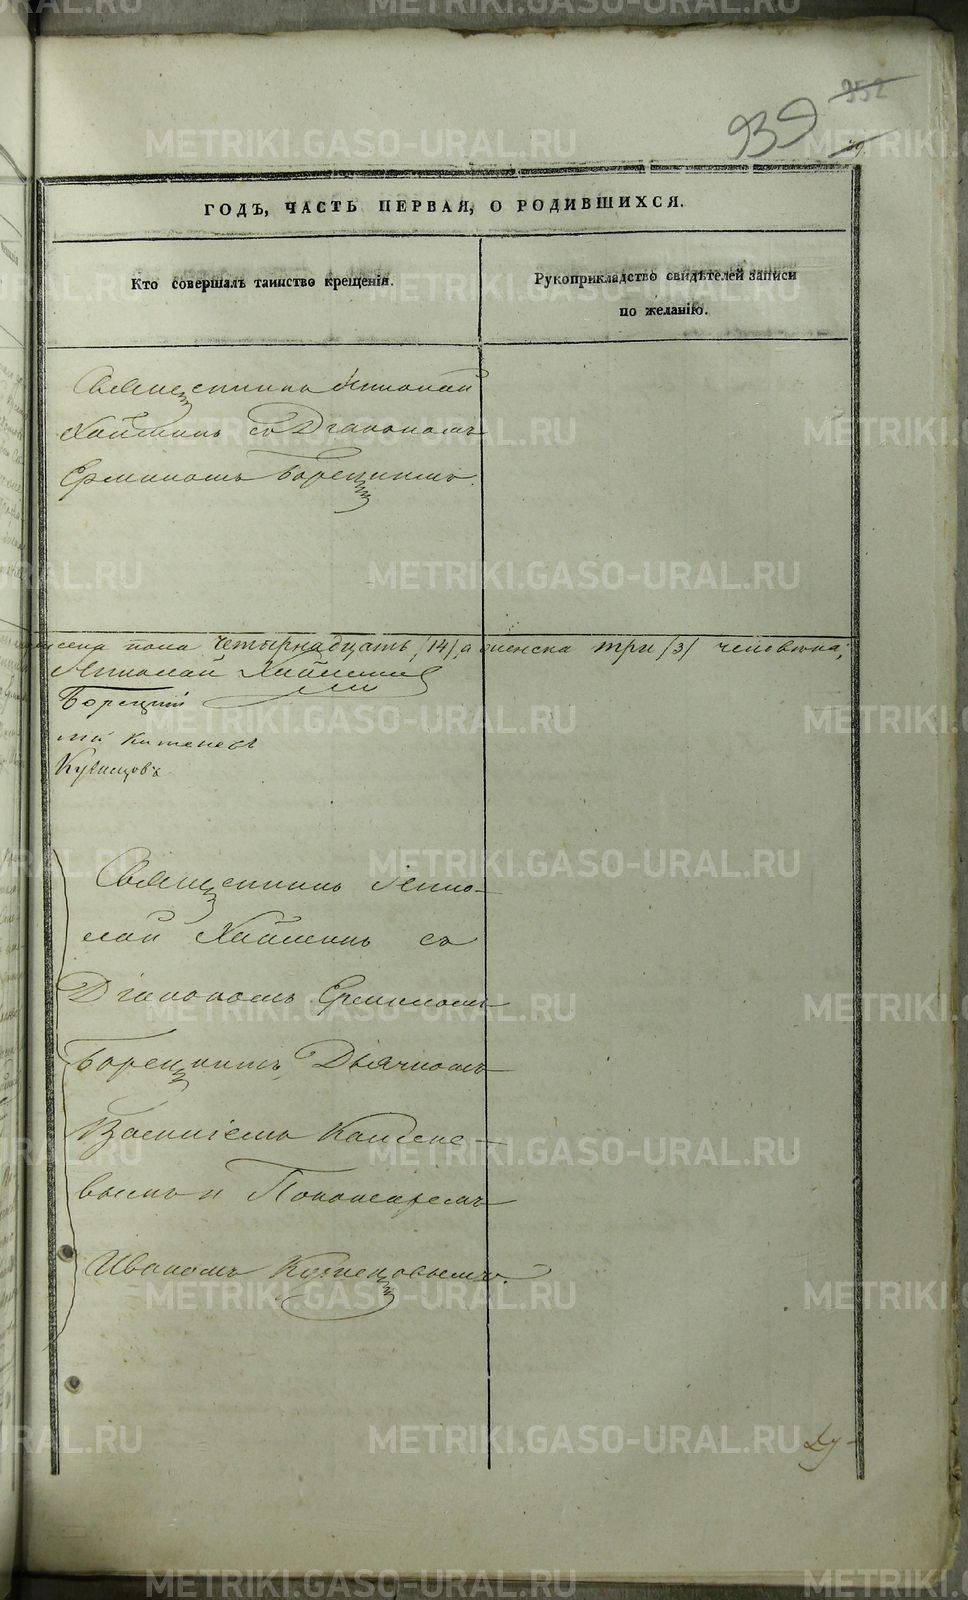 952
939
ГОДЪ, ЧАСТЬ ПЕРВАЯ, О РОДИВШИХСЯ.
Кто совершалъ таинство крещенія.
Рукоприкладство свидѣтелей записи
по желанію.
Священникъ Николай
съ Діакономъ
Борецкимъ.
пола четырнадцать /14/, а женска три /3/ человѣка,
Николай
Борецкій
Кузнецовъ
Священникъ Нико-
лай съ
Діакономъ
Борецкимъ, Дьячкомъ
Василіемъ
вымъ и Пономаремъ
Иваномъ Кузнецовымъ.
Ду-
METRIKI.GASO-URAL.RU